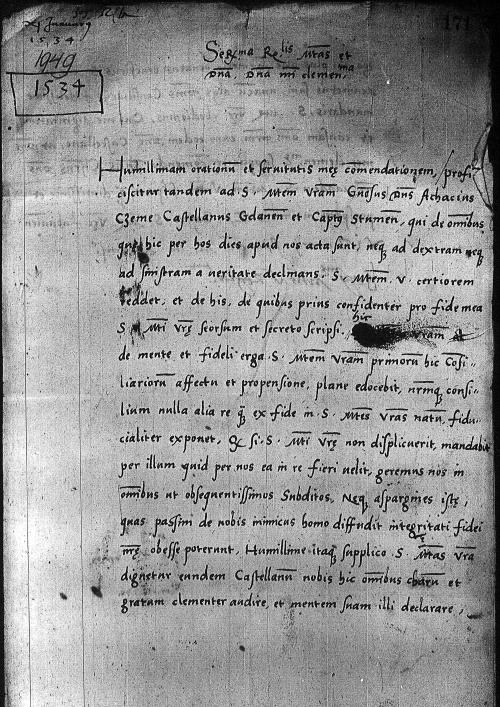 Januarij
1534
1949
1534
171
Ser[eniss]ma Re[ga]lis M[aies]tas et
d[omi]na, d[omi]na mi clemen[tissi]ma
Humillimam orationu[m] et seruitutis meę co[m]mendationem, profi-
ciscitur tandem ad S. Mtem Vram Gnosus Dns Achacius
Czeme Castellanus Gdanen et Capta Stumen, qui de omnibus
quę hic per hos dies apud nos acta sunt, neq ad dextram neq
ad sinistram a ueritate declinans. S. Mtem. V. certiorem
reddet, et de his, de quibus prius confidenter pro fide mea
S. Mti Vrę seorsum et secreto scripsi. hic
de mente et fideli erga S. Mtem Vram primoru hic Cosi-
liarioru affectu et propensione, plane edocebit, nrmq consi-
lium nulla alia re q ex fide in S. Mtes Vras natu, fidu-
cialiter exponet, Qd si S. Mti Vrę non displicuerit, mandabit
per illum quid per nos ea in re fieri uelit, geremus nos in
omibus ut obsequentissimos Subditos, Neq aspargines istę,
quas passim de nobis inimicus homo diffudit integritati fidei
nrę obesse poterunt. Humillime itaq supplico S. Mtas Vra
dignetur eundem Castellanu nobis hic omibus charu et
gratum clementer audire, et mentem suam illi declarare,